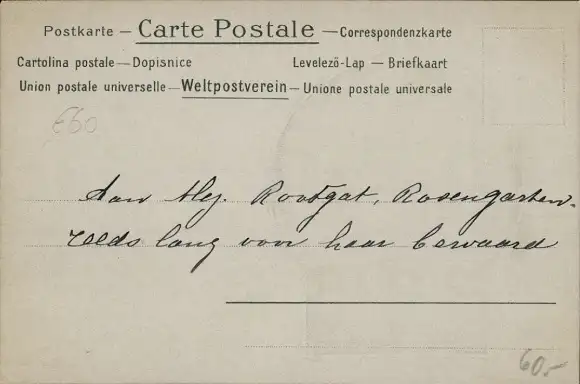 Postkarte – Carte Postale – Correspondenzkarte
Cartolina postale — Dopisnice Levelező-Lap — Briefkaart
Union postale universelle — Weltpostverein — Unione postale universale
€60
Aan Mej. Rootgat, Rosengarten.
reeds lang voor haar bewaard
60,-